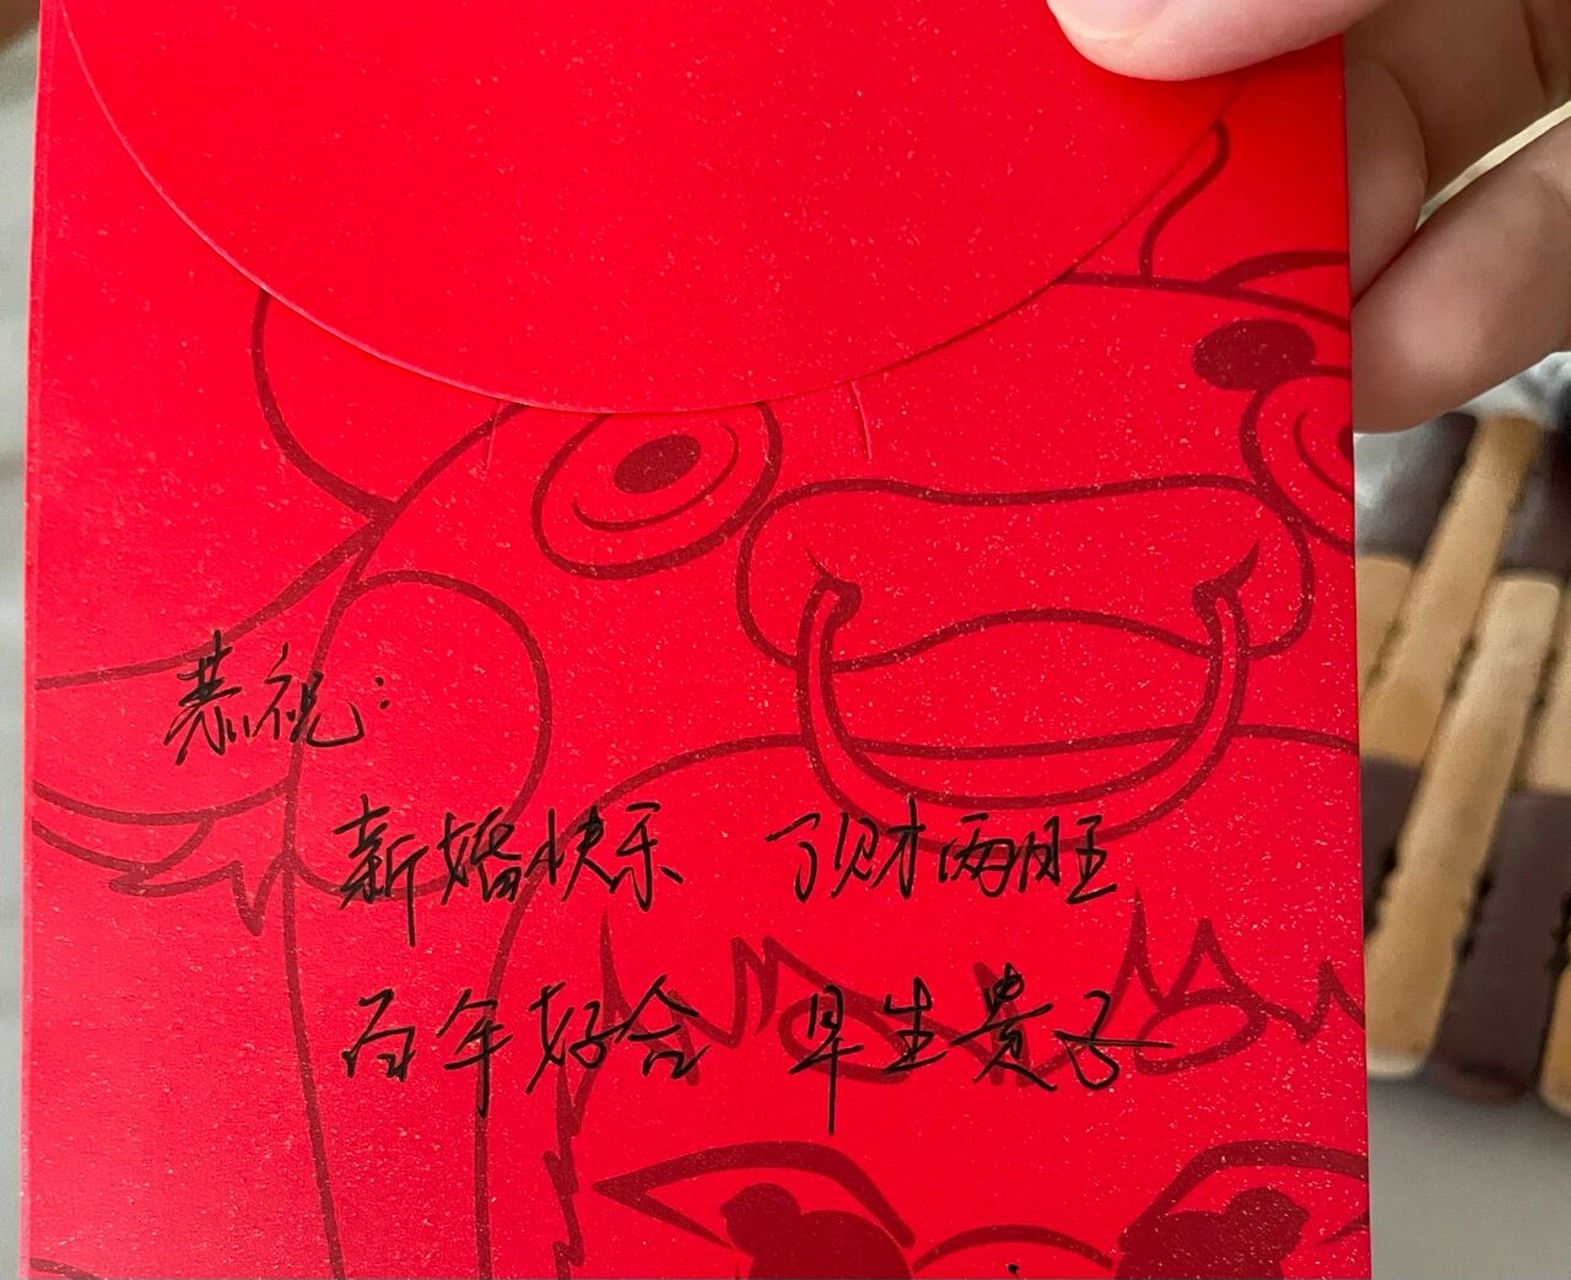 恭祝:
新婚快乐 丁财两旺
百年好合 早生贵子